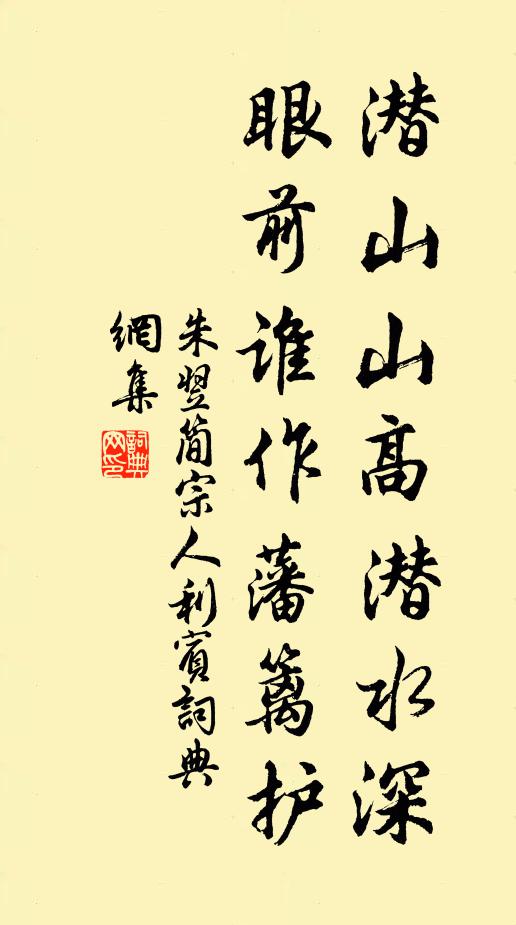 潜山山高潜水深
眼前谁作藩篱护
朱翌简宗人利賓詞典
網集
詞典
网印